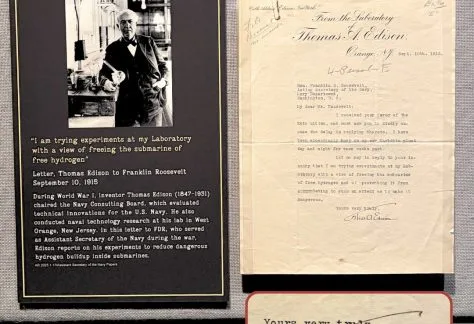 "I am trying experiments at my Laboratory
with a view of freeing the submarine of
free hydrogen"
Letter, Thomas Edison to Franklin Roosevelt
September 10, 1915
During World War I, inventor Thomas Edison (1847-1931)
chaired the Navy Consulting Board, which evaluated
technical innovations for the U.S. Navy. He also
conducted naval technology research at his lab in West
Orange, New Jersey. In this letter to FDR, who served
as Assistant Secretary of the Navy during the war,
Edison reports on his experiments to reduce dangerous
hydrogen buildup inside submarines.
From the Laboratory
of
Thomas A. Edison,
Orange, N.J. Sept. 10th, 1915.
Hon. Franklin D. Roosevelt,
Acting Secretary of the Navy
Navy Department,
Washington, D. C.
My dear Mr. Roosevelt:
I received your favor of the
day and night for two weeks past.
Let me say in reply to your
that I am trying experiments at my
with a view of freeing the submarine of
free hydrogen and of preventing it from
accumulating to such an extent as to make it
dangerous.
Yours very truly,
Thos A Edison
Yours very truly